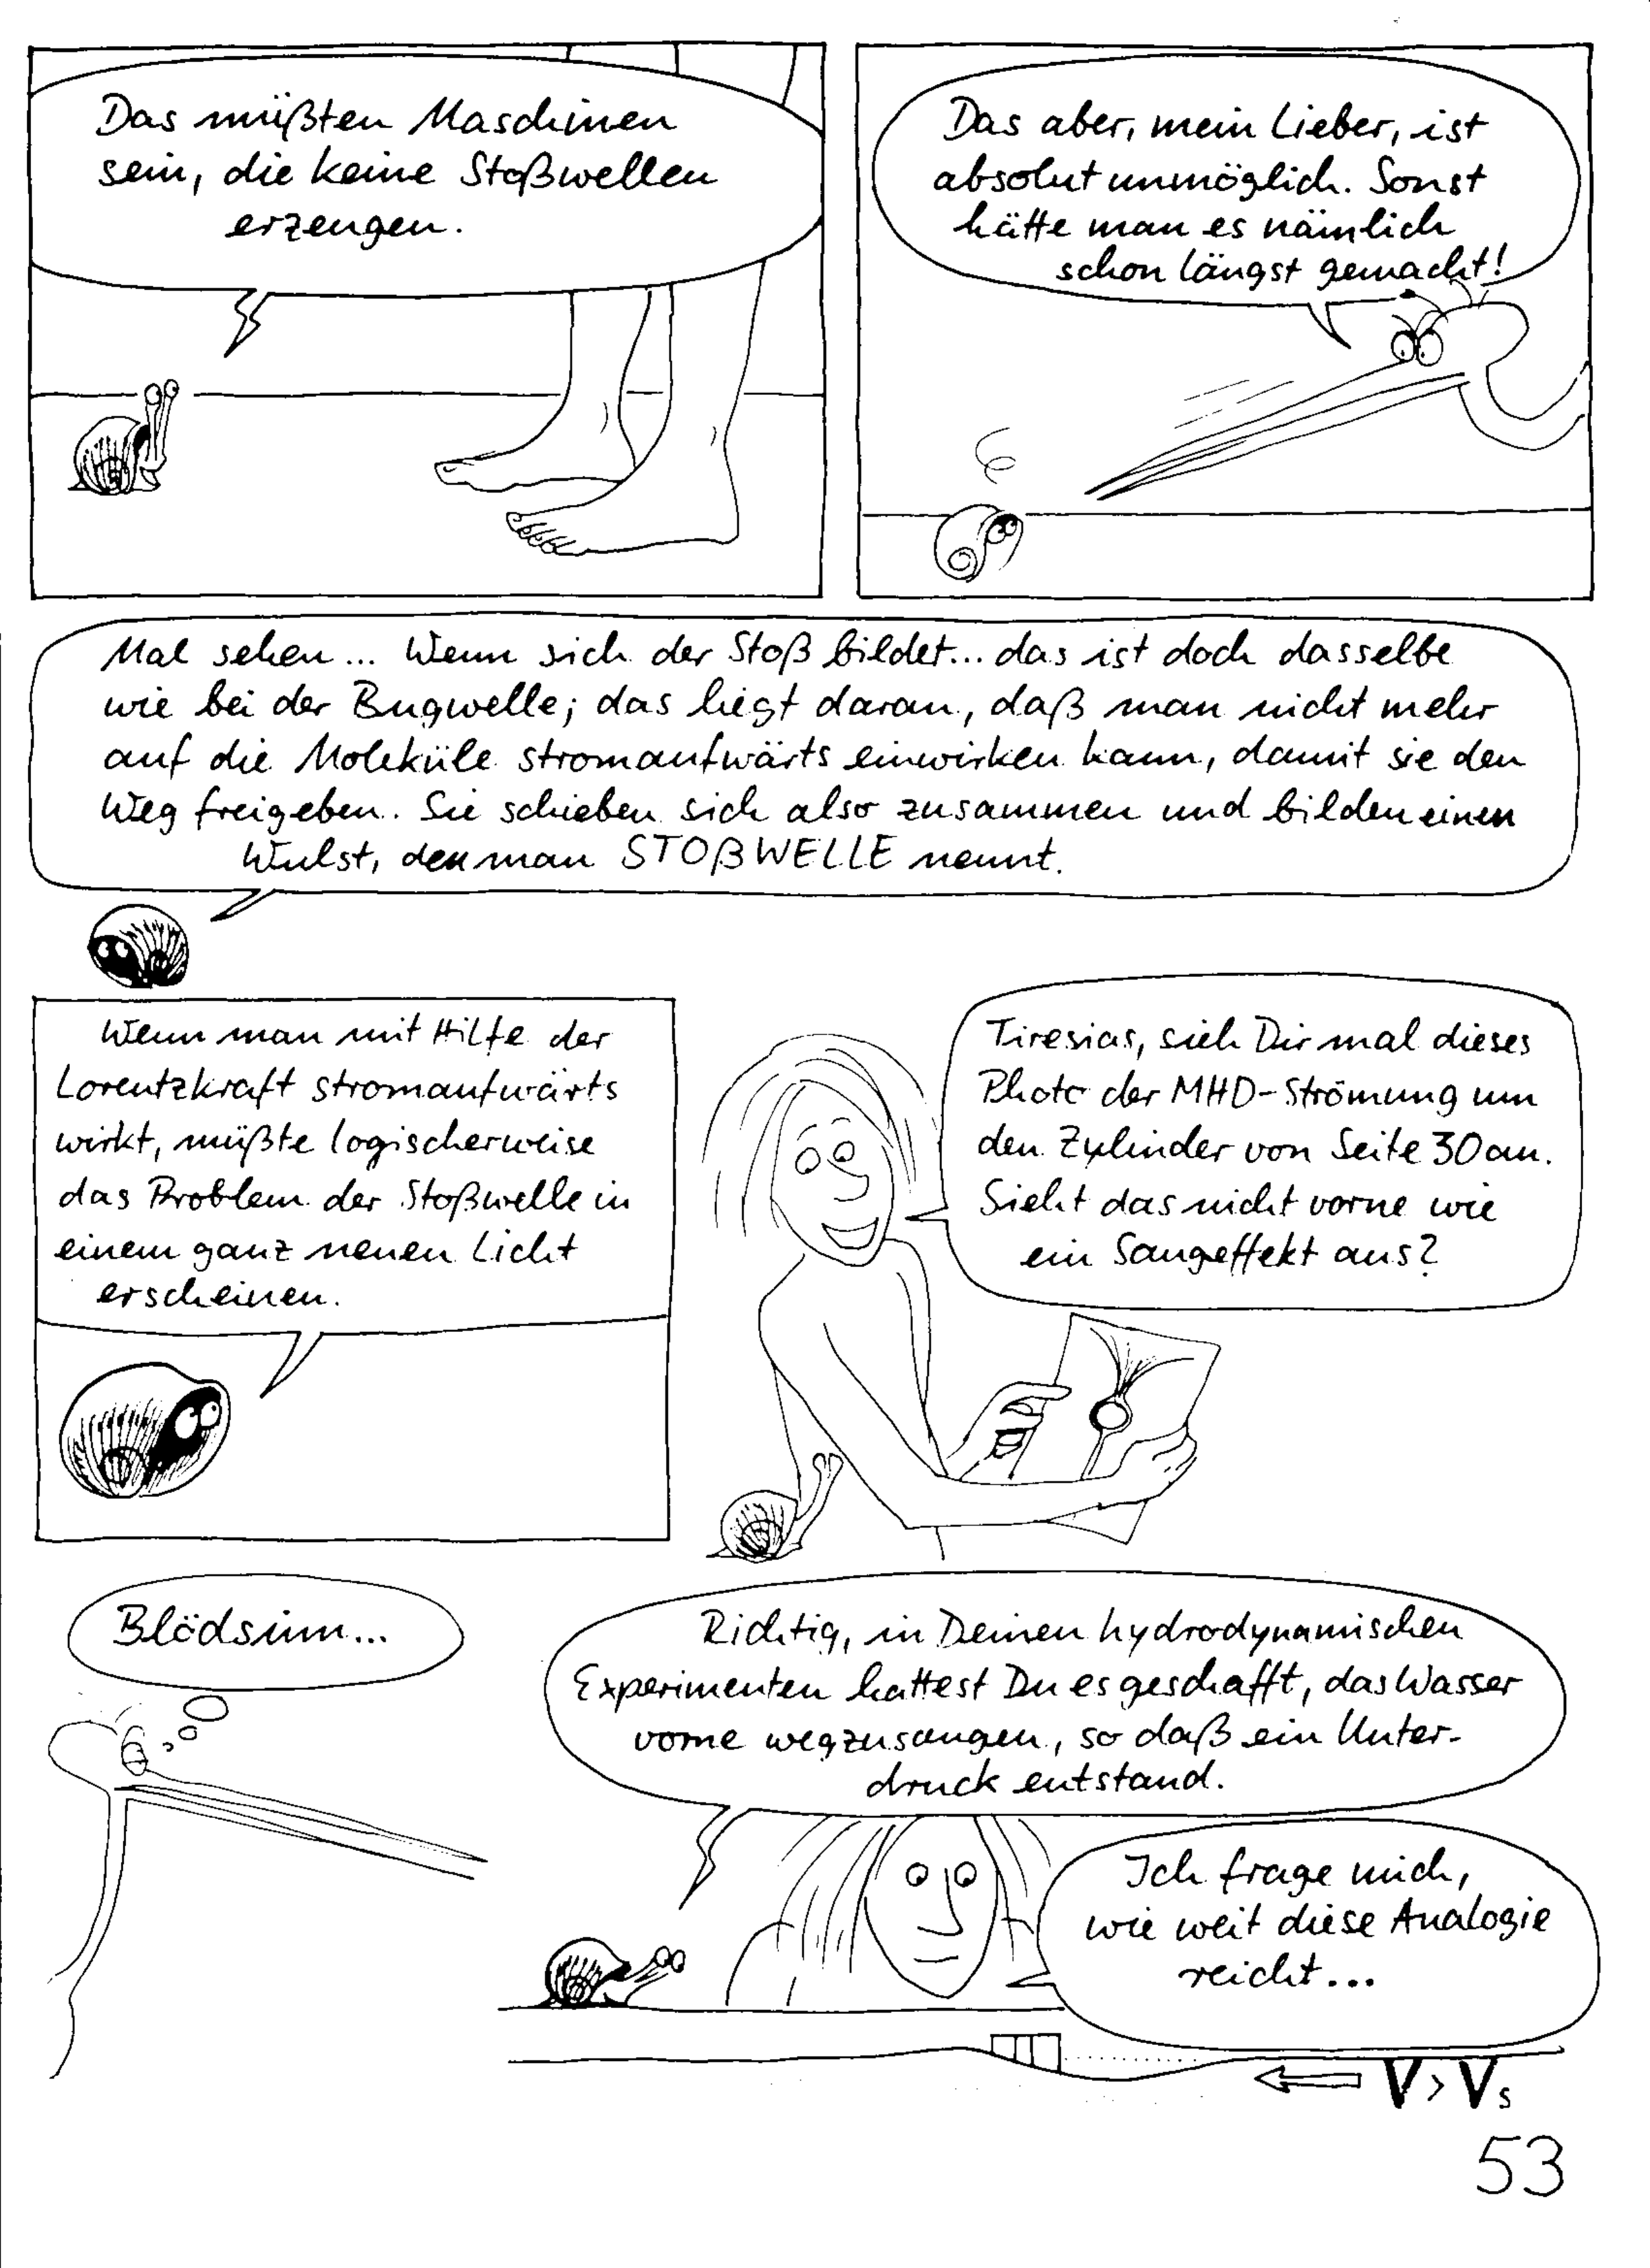 Das müßten Maschinen
sein, die keine Stoßwellen
erzeugen.
Das aber, mein Lieber, ist
absolut unmöglich. Sonst
hätte man es nämlich
schon längst gemacht!
Mal sehen... Wenn sich der Stoß bildet... das ist doch dasselbe
wie bei der Bugwelle; das liegt daran, daß man nicht mehr
auf die Moleküle stromaufwärts einwirken kann, damit sie den
Weg freigeben. Sie schieben sich also zusammen und bilden einen
Wulst, den man STOßWELLE nennt.
Wenn man mit Hilfe der
Lorentzkraft stromaufwärts
wirkt, müßte logischerweise
das Problem der Stoßwelle in
einem ganz neuen Licht
erscheinen.
Tiresias, sieh Dir mal dieses
Photo der MHD-Strömung um
den Zylinder von Seite 30 an.
Sieht das nicht vorne wie
ein Saugeffekt aus?
Blödsinn...
Richtig, in Deinen hydrodynamischen
Experimenten hattest Du es geschafft, das Wasser
vorne wegzusaugen, so daß ein Unter-
druck entstand.
Ich frage mich,
wie weit diese Analogie
reicht...
V > Vs
53